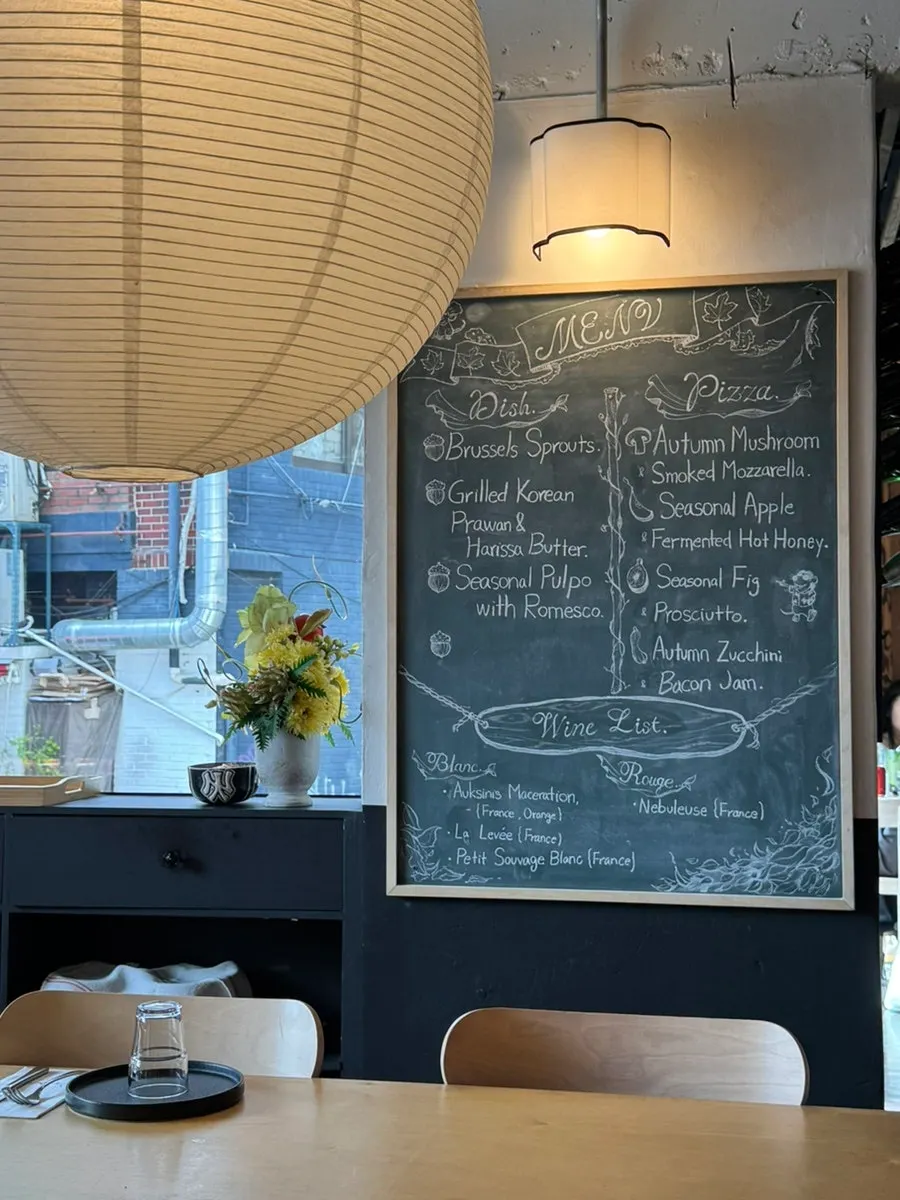 MENU
Dish.
Brussels Sprouts.
Grilled Korean
Prawan &
Harissa Butter.
Seasonal Pulpo
with Romesco.
Pizza.
Autumn Mushroom
& Smoked Mozzarella.
Seasonal Apple
& Fermented Hot Honey.
Seasonal Fig
& Prosciutto.
Autumn Zucchini
& Bacon Jam.
Wine List.
Blanc.
· Auksinis Maceration,
(France, Orange)
· La Levée (France)
· Petit Sauvage Blanc (France)
Rouge.
· Nebuleuse (France)
NY